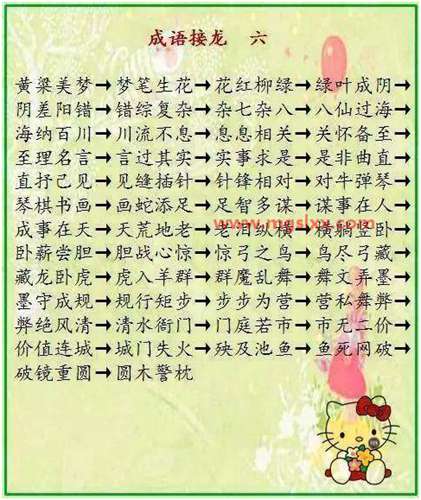 成语接龙 六
黄粱美梦→梦笔生花→花红柳绿→绿叶成阴→
阴差阳错→错综复杂→杂七杂八→八仙过海→
海纳百川→川流不息→息息相关→关怀备至→
至理名言→言过其实→实事求是→是非曲直→
直抒己见→见缝插针→针锋相对→对牛弹琴→
琴棋书画→画蛇添足→足智多谋→谋事在人→
www.mgslxy.com
成事在天→天荒地老→老泪纵横→横躺竖卧→
卧薪尝胆→胆战心惊→惊弓之鸟→鸟尽弓藏→
藏龙卧虎→虎入羊群→群魔乱舞→舞文弄墨→
墨守成规→规行矩步→步步为营→营私舞弊→
弊绝风清→清水衙门→门庭若市→市无二价→
价值连城→城门失火→殃及池鱼→鱼死网破→
破镜重圆→圆木警枕